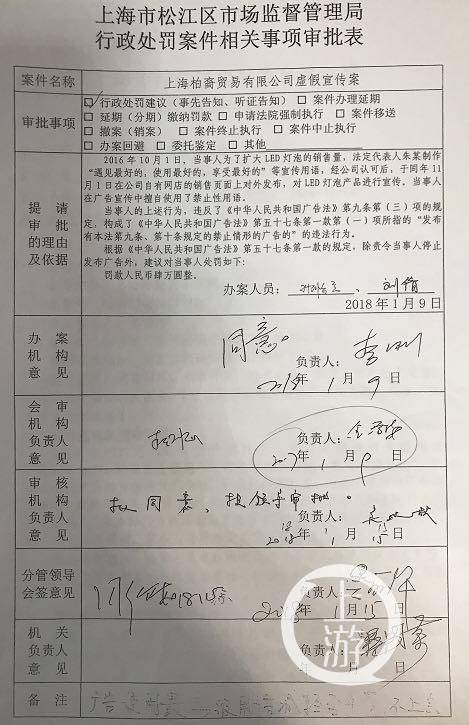 上海市松江区市场监督管理局
行政处罚案件相关事项审批表
案件名称 上海柏裔贸易有限公司虚假宣传案
审批事项
☑行政处罚建议（事先告知、听证告知）□ 案件办理延期
□ 延期（分期）缴纳罚款 □ 申请法院强制执行 □ 案件移送
□ 撤案（销案） □ 案件终止执行 □ 案件中止执行
□ 办案回避 □ 委托鉴定 □ 其他
提请审批的理由及依据
2016年10月1日，当事人为了扩大LED灯泡的销售量，法定代表人朱某制作
“遇见最好的，使用最好的，享受最好的”等宣传用语，经公司认可后，于同年11
月1日在公司自有网店的销售页面上对外发布，对LED灯泡产品进行宣传。当事人
在广告宣传中擅自使用了禁止性用语。
当事人的上述行为，违反了《中华人民共和国广告法》第九条第（三）项的规
定，构成了《中华人民共和国广告法》第五十七条第一款第（一）项所指的“发布
有本法第九条、第十条规定的禁止情形的广告的”的违法行为。
根据《中华人民共和国广告法》第五十七条第一款的规定，除责令当事人停止
发布广告外。建议对当事人处罚如下：
罚款人民币肆万圆整。
办案人员：
2018年1月9日
办案机构意见
同意。
负责人：
年 1 月 9 日
会审机构负责人意见
负责人：
2017年 1 月 9 日
审核机构负责人意见
拟同意，按领导审批。
负责人：
年 1 月 15 日
分管领导会签意见
年 1 月 15 日
机关负责人意见
负责人：
年 月 日
备注
上游